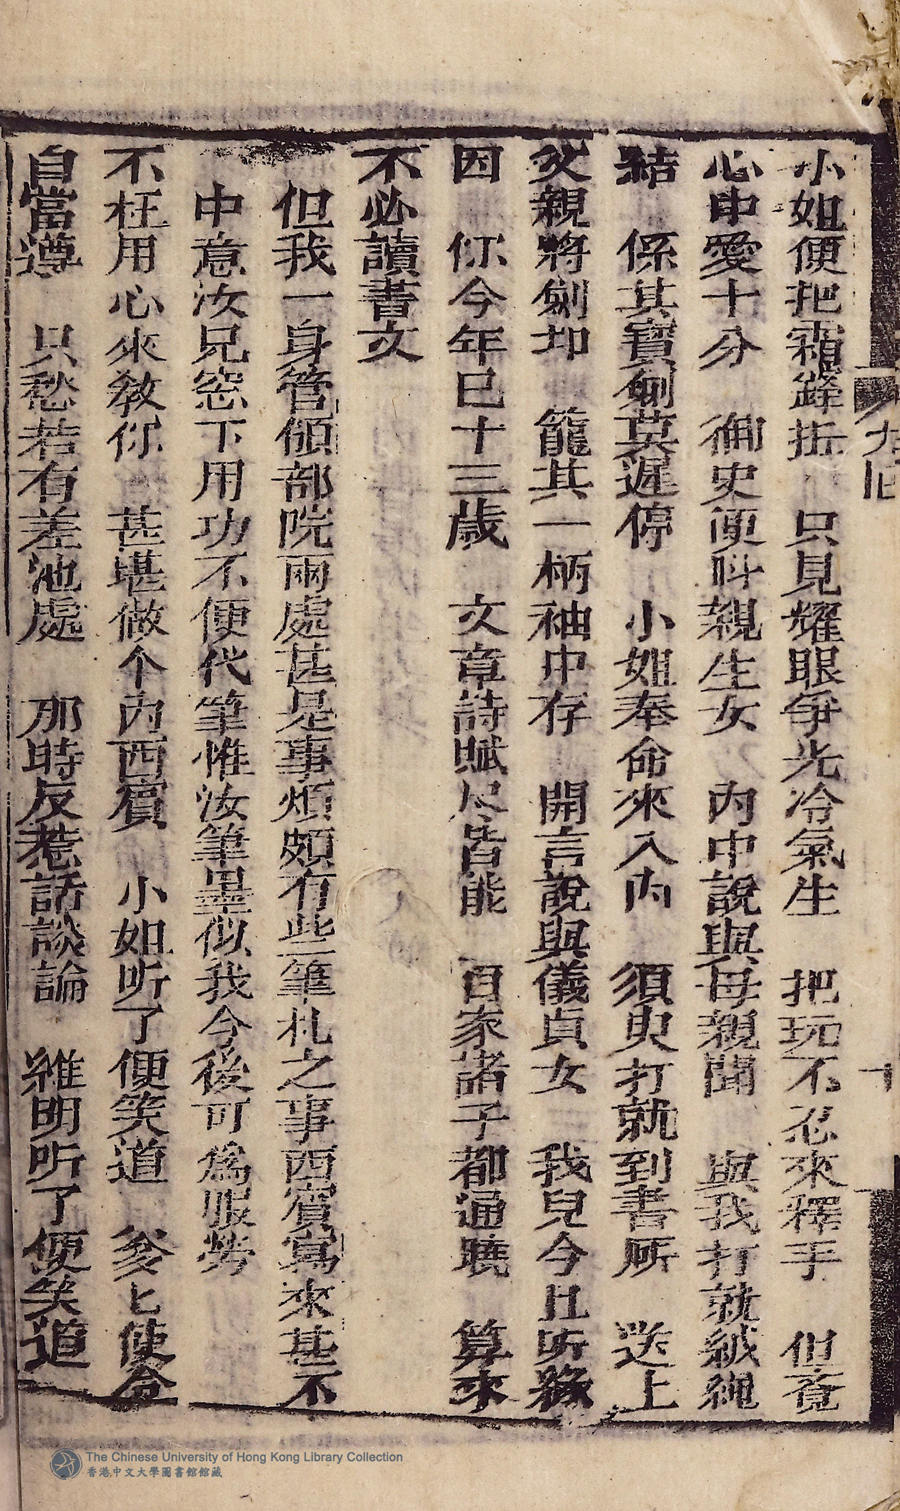 小姐便把霜鋒拆 只見耀眼爭光冷氣生 把玩不忍來釋手 但覺
心中愛十分 御史便叫親生女 內中說與母親聞 與我打就絨繩
結 係其寶劍莫遲停 小姐奉命來入內 須臾打就到書房 送上
父親將劍却 籠其一柄袖中存 開言說與儀貞女 我兒今且听緣
因 你今年已十三歲 文章詩賦尽皆能 百家諸子都通曉 算來
不必讀書文
但我一身管傾部院兩處甚是事煩頗有些筆札之事西賓寫來甚不
中意汝兄窓下用功不便代筆惟汝筆墨似我今後可為服勞
不枉用心來敎你 甚堪做个內西賓 小姐听了便笑道 爹匕使令
自當遵 只愁若有差池處 那時反惹話談論 維明听了便笑道
The Chinese University of Hong Kong Library Collection
香港中文大學圖書館館藏